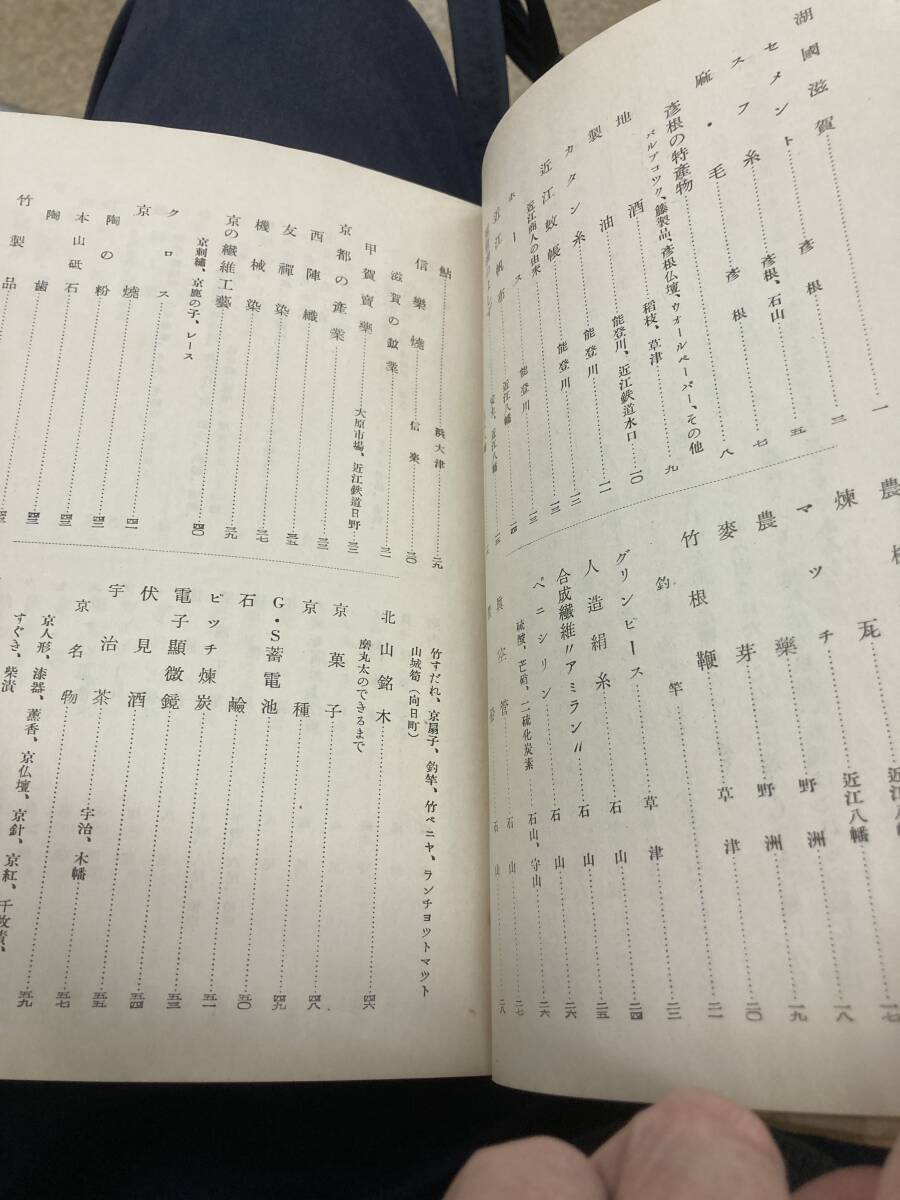 湖國滋賀……一
セメント……彦根……三
スフ糸……彦根、石山……五
麻・毛……彦根……七
彦根の特産物……八
バルブコック、籐製品、彦根仏壇、ウォールペーパー、その他
地酒……稻枝、草津……九
製油……能登川、近江鉄道水口……一〇
カタン糸……能登川……一一
近江蚊帳……能登川……一三
近江商人の由来……一三
ホース……能登川……一四
近江帆布……近江八幡
瓦……近江八幡……一七
煉……近江八幡……一八
マッチ……野洲……一九
農藥……野洲……二〇
麥芽……草津……二一
竹根鞭
釣竿……二三
グリンピース……草津……二四
人造絹糸……石山……二五
合成纖維〃アミラン〃……石山……二六
ペニシリン……石山……二六
硫酸、芒硝、二硫化炭素……石山、守山……二七
眞空管……石山……二八
鮎……浜大津……二九
信樂燒……信楽……三〇
滋賀の鉱業……三一
甲賀賣藥……大原市場、近江鉄道日野……三二
京都の產業……三三
西陣織……三五
友禪染……三七
機械染……三九
京の纖維工藝……四〇
京刺繡、京鹿の子、レース
クロス……四一
京燒……四二
陶の粉……四三
本山砥石……四三
陶歯……四三
竹製品
竹すだれ、京扇子、釣竿、竹ベニヤ、ランチョットマット
山城筍(向日町)
北山銘木……四六
磨丸太のできるまで
京菓子……四八
京種……四九
G・S蓄電池……五〇
石鹼……五一
ピッチ煉炭……五三
電子顯微鏡……五四
伏見酒……五五
宇治茶……宇治、木幡……五七
京名物……五九
京人形、漆器、薫香、京仏壇、京針、京紅、千枚漬、
すぐき、柴漬